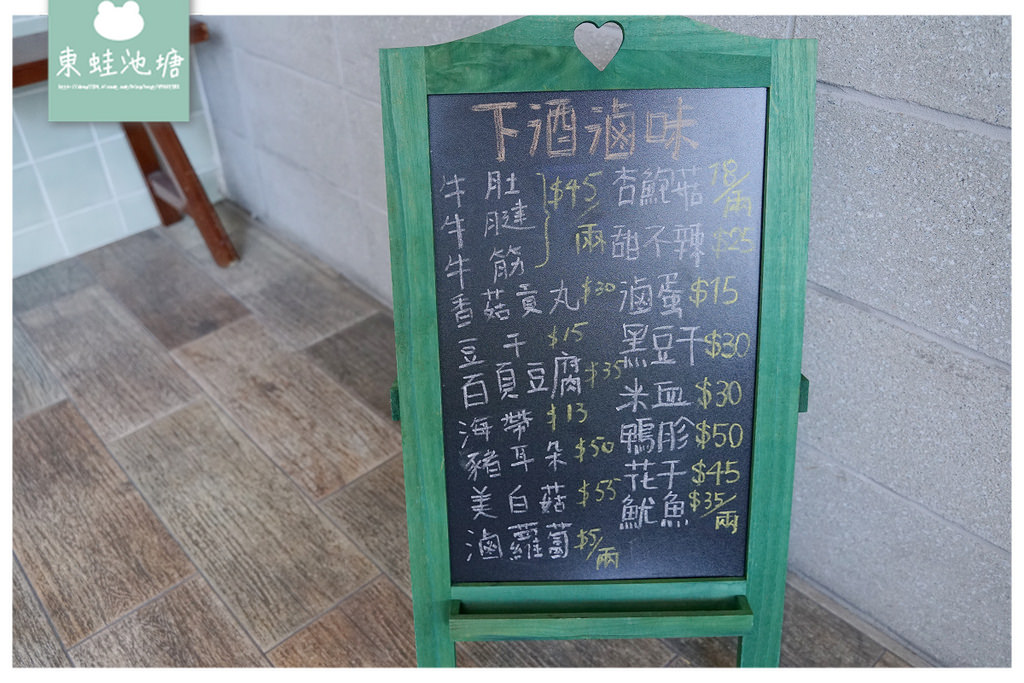 東蛙池塘
下酒滷味
牛肚
牛腱
牛筋
$45/兩
香菇貢丸$30
豆干$15
百頁豆腐$35
海帶$13
豬耳朵$50
美白菇$55
滷蘿蔔$5/兩
杏鮑菇18/兩
甜不辣$25
滷蛋$15
黑豆干$30
米血$30
鴨胗$50
花干$45
魷魚$35/兩